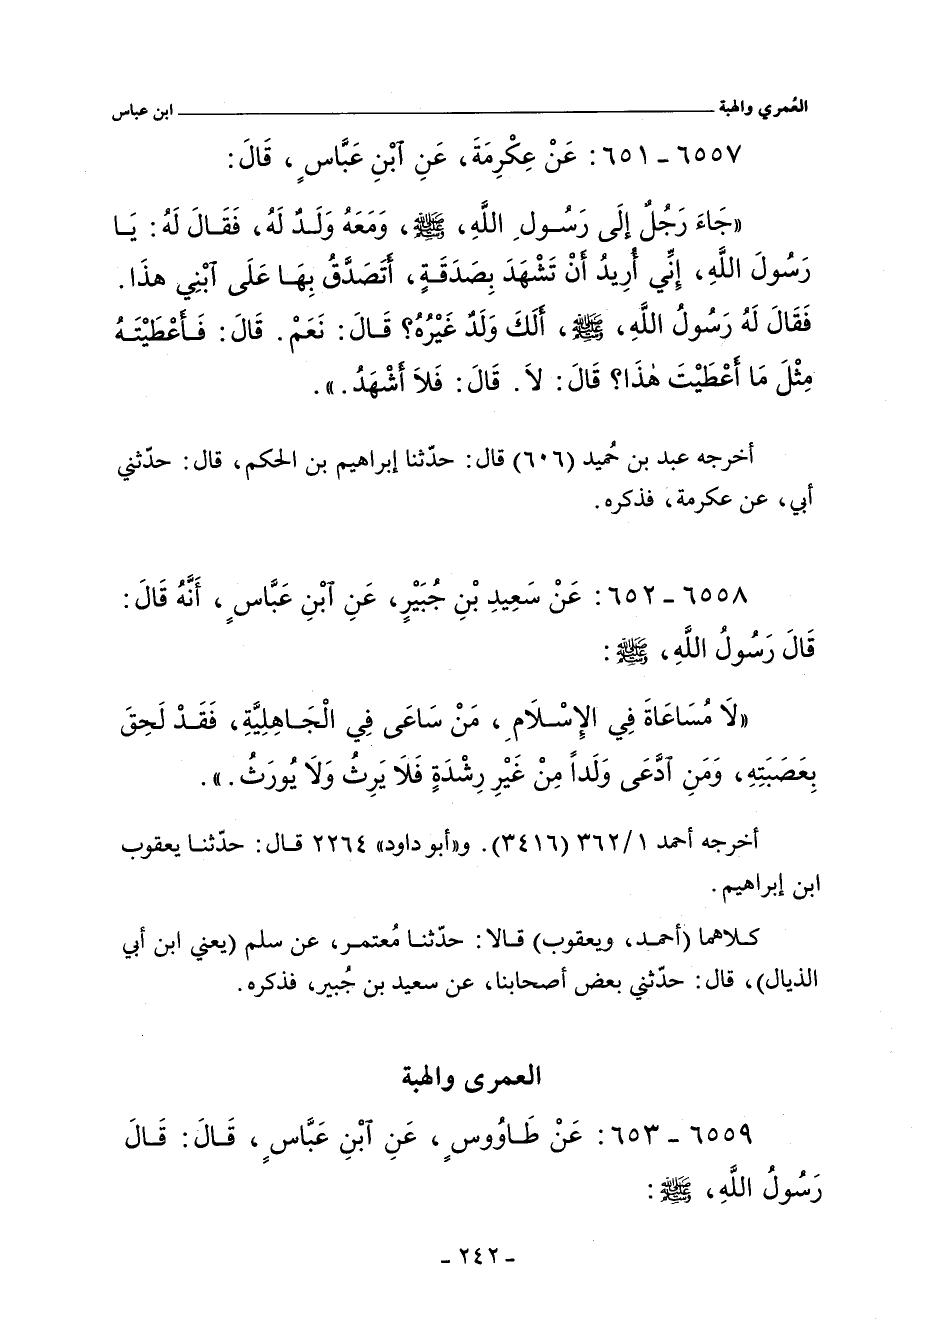 العُمري والهبة ــــــــــــــــــــ ابن عباس
٦٥٥٧ ـ ٦٥١: عَنْ عِكْرِمَةَ، عَنِ ٱبْنِ عَبَّاسٍ، قَالَ:
«جَاءَ رَجُلٌ إِلَى رَسُولِ اللَّهِ، ﷺ، وَمَعَهُ وَلَدٌ لَهُ، فَقَالَ لَهُ: يَا
رَسُولَ اللَّهِ، إِنِّي أُرِيدُ أَنْ تَشْهَدَ بِصَدَقَةٍ، أَتَصَدَّقُ بِهَا عَلَى ٱبْنِي هذَا.
فَقَالَ لَهُ رَسُولُ اللَّهِ، ﷺ، أَلَكَ وَلَدٌ غَيْرُهُ؟ قَالَ: نَعَمْ. قَالَ: فَأَعْطَيْتَهُ
مِثْلَ مَا أَعْطَيْتَ هٰذَا؟ قَالَ: لاَ. قَالَ: فَلاَ أَشْهَدُ.».
أخرجه عبد بن حُميد (٦٠٦) قال: حدّثنا إبراهيم بن الحكم، قال: حدّثني
أبي، عن عكرمة، فذكره.
٦٥٥٨ ـ ٦٥٢: عَنْ سَعِيدِ بْنِ جُبَيْرٍ، عَنِ ٱبْنِ عَبَّاسٍ، أَنَّهُ قَالَ:
قَالَ رَسُولُ اللَّهِ، ﷺ:
«لَا مُسَاعَاةَ فِي الإِسْلَامِ، مَنْ سَاعَى فِي الْجَاهِلِيَّةِ، فَقَدْ لَحِقَ
بِعَصَبَتِهِ، وَمَنِ ٱدَّعَى وَلَداً مِنْ غَيْرِ رِشْدَةٍ فَلَا يَرِثُ وَلَا يُورَثُ.».
أخرجه أحمد ١/٣٦٢ (٣٤١٦). و«أبو داود» ٢٢٦٤ قال: حدّثنا يعقوب
ابن إبراهيم.
كلاهما (أحمد، ويعقوب) قالا: حدّثنا مُعتمر، عن سلم (يعني ابن أبي
الذيال)، قال: حدّثني بعض أصحابنا، عن سعيد بن جُبير، فذكره.
العمرى والهبة
٦٥٥٩ ـ ٦٥٣: عَنْ طَاوُوسٍ، عَنِ ٱبْنِ عَبَّاسٍ، قَالَ: قَالَ
رَسُولُ اللَّهِ، ﷺ:
ـ ٢٤٢ ـ